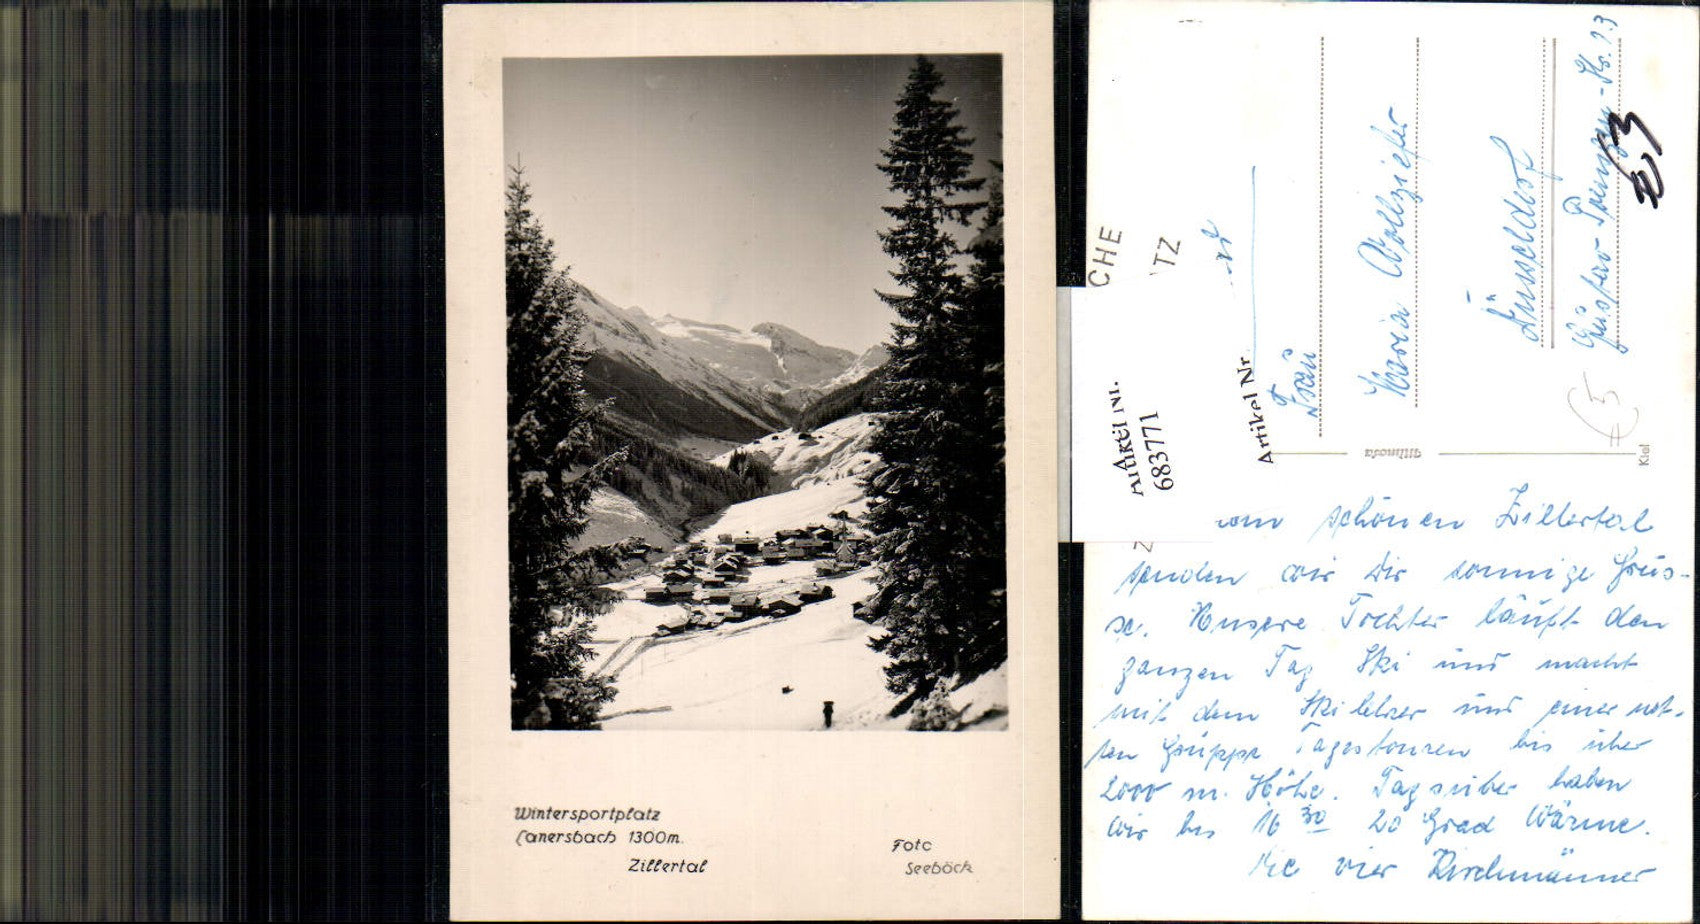 Wintersportplatz
Lanersbach 1300m.
Zillertal
Foto
Seeböck
CHE
TZ
Artikel Nr.
683771
Artikel Nr.
Frau
Maria
Düsseldorf
Gustav-Poensgen-Str. 73
€ 5
Ultinosta
Kiel
vom schönen Zillertal
senden wir Dir sonnige Grüs-
se. Unsere Tochter läuft den
ganzen Tag Ski und macht
mit dem Skilehrer und einer net-
ten Gruppe Tagestouren bis über
2000 m. Höhe. Tagsüber haben
wir bis 16 30 20 Grad Wärme.
Die vier Kirchmänner